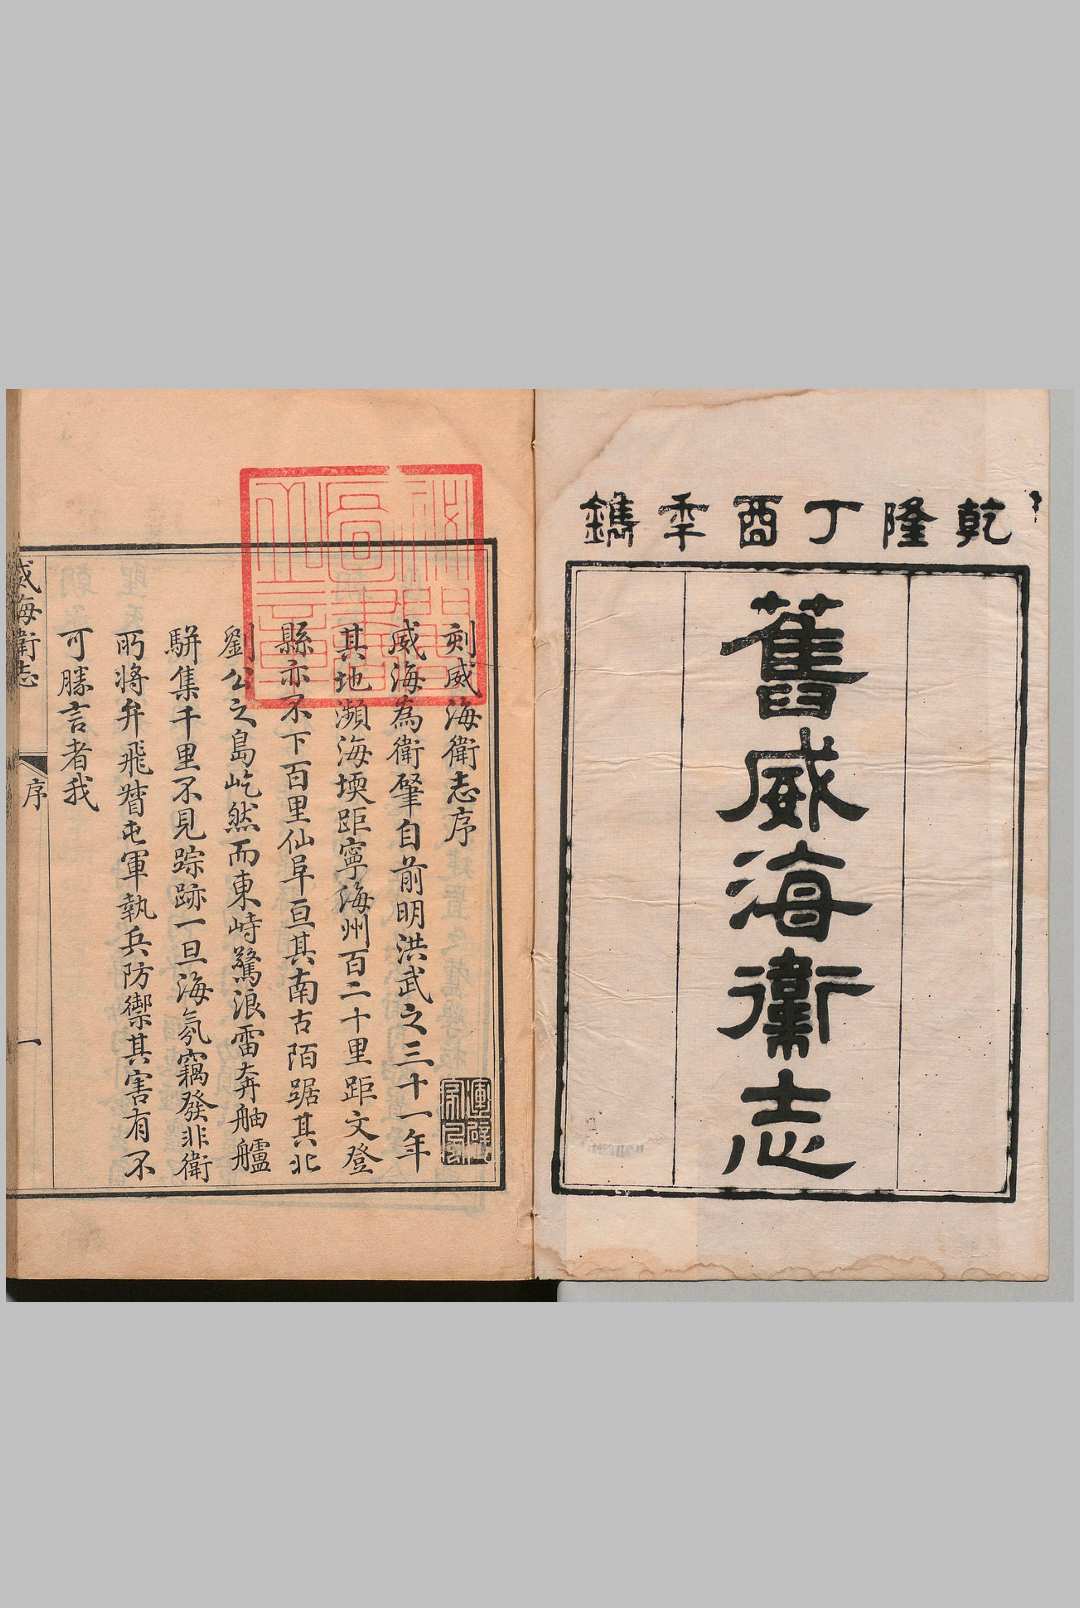 乾隆丁酉季鐫
舊威海衛志
刻威海衛志序
威海為衛肇自前明洪武之三十一年
其地瀕海堧距寧海州百二十里距文登
縣亦不下百里仙阜亘其南古陌踞其北
劉公之島屹然而東峙驚浪雷奔舳艫
駢集千里不見踪跡一旦海氛竊發非衛
所將弁飛督屯軍執兵防禦其害有不
可勝言者我
威海衛志
序
一